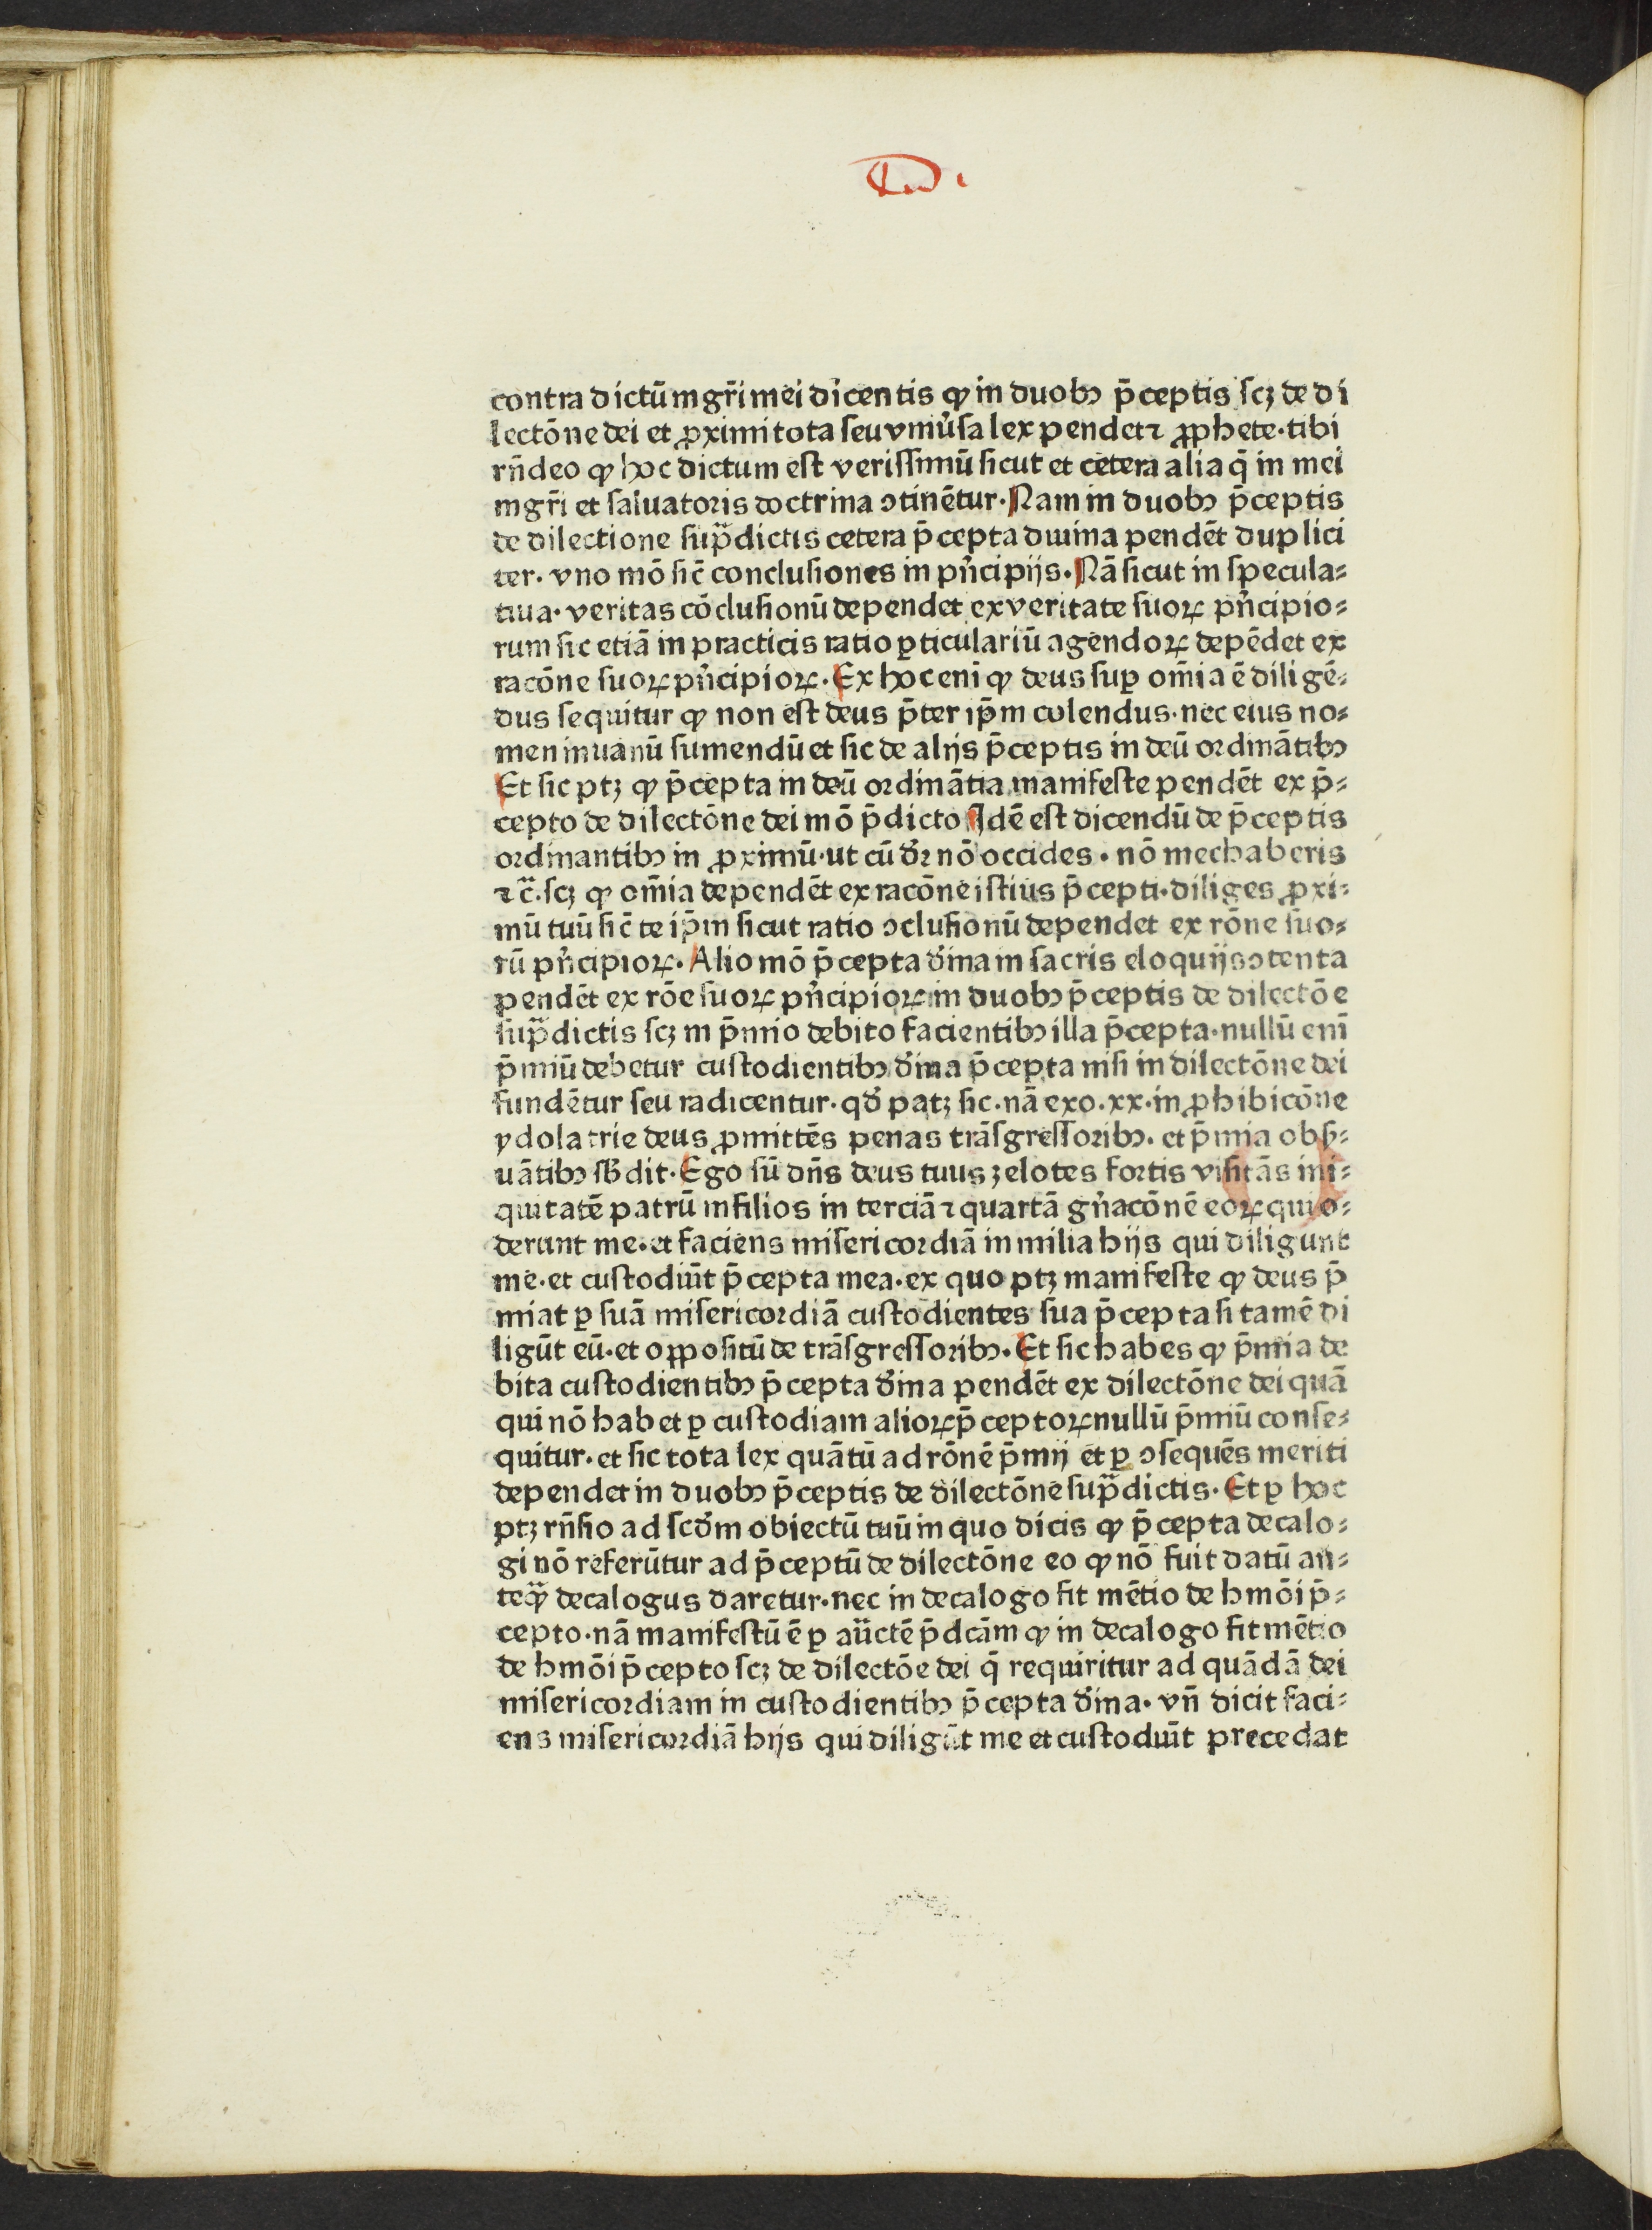 contra dictū mgr̄i mei dicentis ꝙ in duobꝰ p̄ceptis scꝫ de di
lectōne dei et ꝓximi tota seu vniu̓sa lex pendet ⁊ ꝓphete· tibi
rn̄deo ꝙ hoc dictum est verissimū sicut et cetera alia q̄ in mei
mgr̄i et saluatoris doctrina ↄtinētur· Nam in duobꝰ p̄ceptis
de dilectione sup̄dictis cetera p̄cepta diuina pendēt duplici
ter· vno mō sic̄ conclusiones in pn̓cipijs· Nā sicut in specula⸗
tiua· veritas cōclusionū dependet ex veritate suoꝝ pn̓cipio⸗
rum sic etiā in practicis ratio ꝑticulariū agendoꝝ depēdet ex
racōne suoꝝ pn̓cipioꝝ· Ex hoc eni ꝙ deus suꝑ om̄ia ē diligē⸗
dus sequitur ꝙ non est deus p̄ter ip̄m colendus· nec eius no⸗
men in uanū sumendū et sic de alijs p̄ceptis in deū ordinātibꝰ
Et sic ptꝫ ꝙ p̄cepta in deū ordinātia manifeste pendēt ex p̄⸗
cepto de dilectōne dei mō p̄dicto Idē est dicendū de p̄ceptis
ordinantibꝰ in ꝓximū· ut cū dr̄ nō occides · nō mechaberis
⁊c̄· scꝫ ꝙ om̄ia dependēt ex racōne istius p̄cepti· diliges ꝓxi⸗
mū tuū sic̄ te ip̄m sicut ratio ↄclusionū dependet ex rōne suo⸗
rū pn̓cipioꝝ· Alio mō p̄cepta dīna in sacris eloquijs ↄtenta
pendēt ex rōe suoꝝ pn̓cipioꝝ in duobꝰ p̄ceptis de dilectōe
sup̄dictis scꝫ in p̄mio debito facientibꝰ illa p̄cepta· nullū enī
p̄miū debetur custodientibꝰ dīna p̄cepta nisi in dilectōne dei
fundētur seu radicentur· qd̓ patꝫ sic· nā exo· xx· in ꝓhibicōne
ydolatrie deus ꝓmittēs penas trāsgressoribꝰ· et p̄mia obẜ⸗
uātibꝰ sb̓dit· Ego sū dn̄s deus tuus zelotes fortis visitās ini⸗
quitatē patrū in filios in terciā ⁊ quartā gn̓acōnē eoꝝ qui o⸗
derunt me· et faciens misericordiā in milia hijs qui diligunt
me· et custodiūt p̄cepta mea· ex quo ptꝫ manifeste ꝙ deus p̄
miat ꝑ suā misericordiā custodientes sua p̄cepta si tamē di
ligūt eū· et oꝓpositū de trāsgressoribꝰ· Et sic habes ꝙ p̄mia de
bita custodientibꝰ p̄cepta dīna pendēt ex dilectōne dei quā
qui nō habet ꝑ custodiam alioꝝ p̄ceptoꝝ nullū p̄miū conse⸗
quitur· et sic tota lex quātū ad rōnē p̄mij et ꝑ ↄsequēs meriti
dependet in duobꝰ p̄ceptis de dilectōne sup̄dictis· Et ꝑ hoc
ptꝫ rn̄sio ad scd̓m obiectū tuū in quo dicis ꝙ p̄cepta decalo⸗
gi nō referūtur ad p̄ceptū de dilectōne eo ꝙ nō fuit datū an⸗
teꝙ̄ decalogus daretur· nec in decalogo fit mētio de hmōi p̄⸗
cepto· nā manifestū ē ꝑ auc̄tē p̄dcām ꝙ in decalogo fit mētio
de hmōi p̄cepto scꝫ de dilectōe dei q̄ requiritur ad quādā dei
misericordiam in custodientibꝰ p̄cepta dīna· vn̄ dicit faci⸗
ens misericordiā hijs qui diligūt me et custodiūt precedat